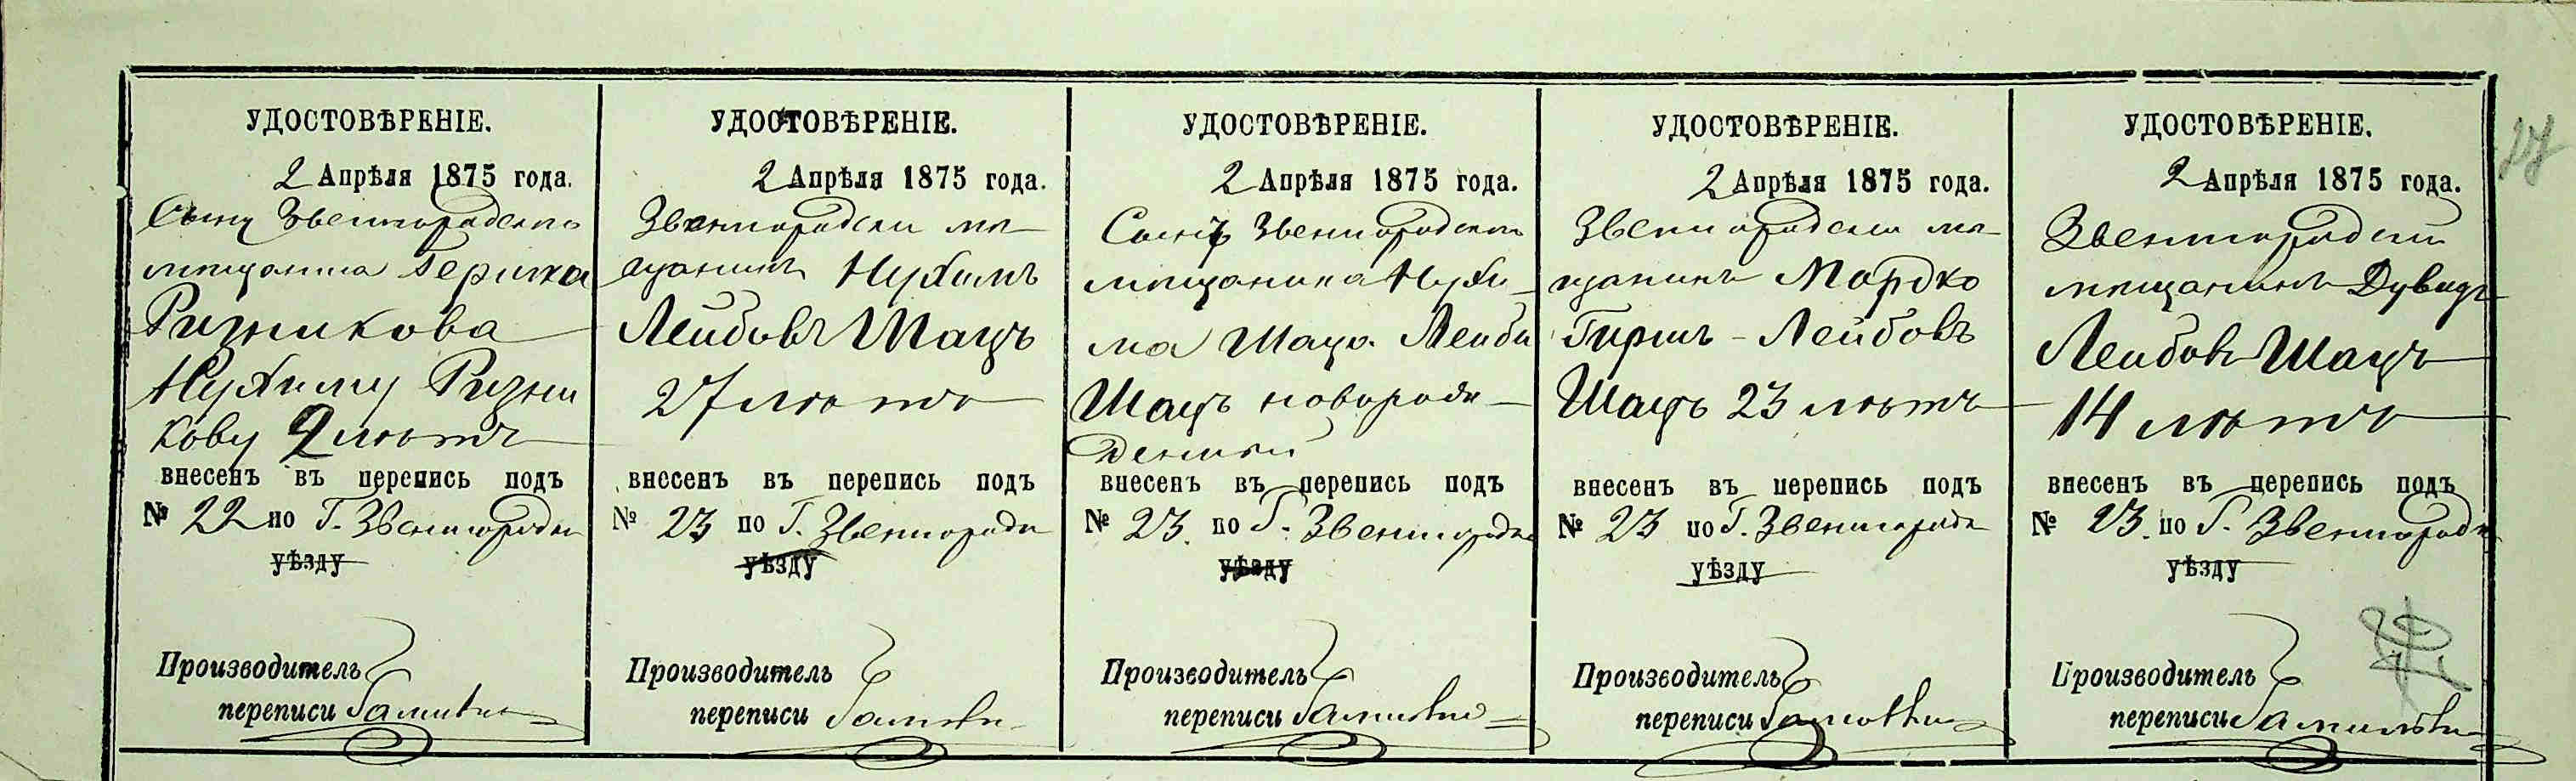 УДОСТОВѢРЕНІЕ.
2 Апрѣля 1875 года.
Сыну Звенигородскаго
мещанина Гершка
Ризникова
Нухиму Ризни
кову 2 лѣтъ
внесенъ въ перепись подъ
№ 22 по Г. Звенигородкѣ
уѣзду
Производитель
переписи
УДОСТОВѢРЕНІЕ.
2 Апрѣля 1875 года.
Звенигородскій мѣ
щанинъ Нухимъ
Лейбовъ Шацъ
27 лѣтъ
внесенъ въ перепись подъ
№ 23 по Г. Звенигородкѣ
уѣзду
Производитель
переписи
УДОСТОВѢРЕНІЕ.
2 Апрѣля 1875 года.
Сынъ Звенигородскаго
мѣщанина Нухи-
ма Шаца Лейба
Шацъ новорож-
денный
внесенъ въ перепись подъ
№ 23. по Г. Звенигородкѣ
уѣзду
Производитель
переписи
УДОСТОВѢРЕНІЕ.
2 Апрѣля 1875 года.
Звенигородскій мѣ-
щанинъ Мордко
Гиршъ-Лейбовъ
Шацъ 23 лѣтъ
внесенъ въ перепись подъ
№ 23 по Г. Звенигородкѣ
уѣзду
Производитель
переписи
УДОСТОВѢРЕНІЕ.
2 Апрѣля 1875 года.
Звенигородскій
мѣщанинъ Дувидъ
Лейбовъ Шацъ
14 лѣтъ
внесенъ въ перепись подъ
№ 23. по Г. Звенигородкѣ
уѣзду
Производитель
переписи